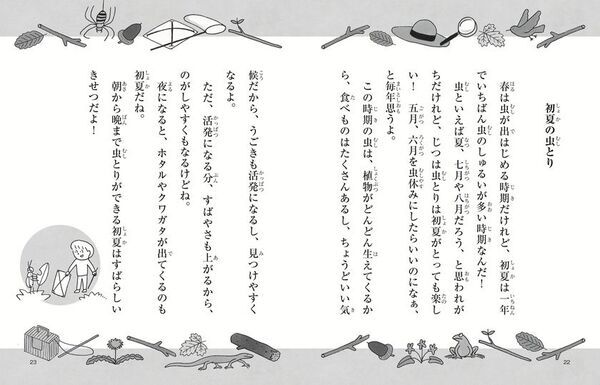 初夏の虫とり
春は虫が出はじめる時期だけれど、初夏は一年
でいちばん虫のしゅるいが多い時期なんだ！
虫といえば夏、七月や八月だろう、と思われが
ちだけれど、じつは虫とりは初夏がとっても楽し
い！　五月、六月を虫休みにしたらいいのになぁ、
と毎年思うよ。
この時期の虫は、植物がどんどん生えてくるか
ら、食べものはたくさんあるし、ちょうどいい気
22
候だから、うごきも活発になるし、見つけやすく
なるよ。
ただ、活発になる分、すばやさも上がるから、
のがしやすくもなるけどね。
夜になると、ホタルやクワガタが出てくるのも
初夏だね。
朝から晩まで虫とりができる初夏はすばらしい
きせつだよ！
23